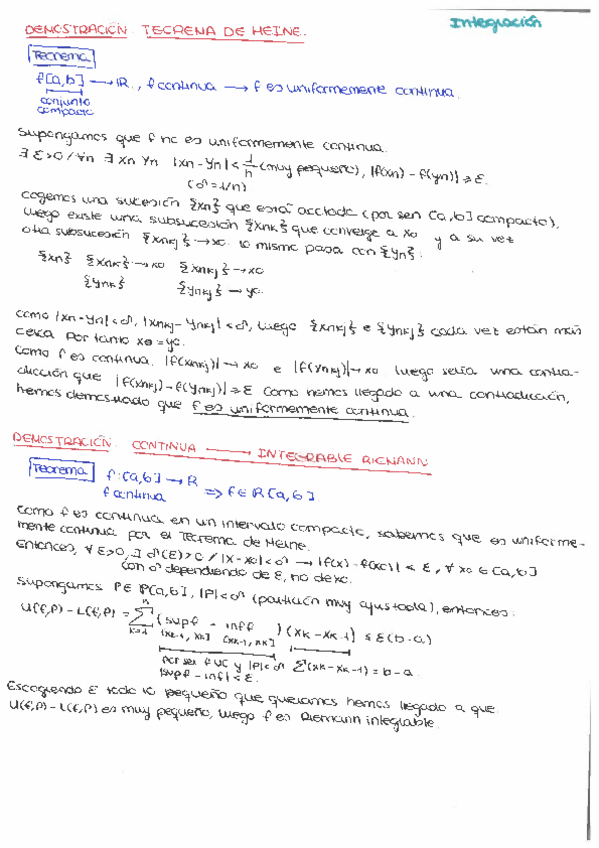 Integración
DEMOSTRACIÓN TEOREMA DE HEINE.
Teorema
f[a,b] → ℝ, f continua → f es uniformemente continua.
conjunto
compacto
Supongamos que f no es uniformemente continua.
∃ ε>0 / ∀n ∃ xn yn |xn-yn| < 1/n (muy pequeño), |f(xn) - f(yn)| ≥ ε.
(δ = 1/n)
cogemos una sucesión {xn} que está acotada (por ser [a,b] compacto),
luego existe una subsucesión {xnk} que converge a xo y a su vez
otra subsucesión {xnkj} → xo lo mismo pasa con {yn}.
{xn} {xnk} → xo {xnkj} → xo
{ynk} {ynkj} → yo.
como |xn-yn| < δ, |xnkj - ynkj| < δ, luego {xnkj} e {ynkj} cada vez están más
cerca por tanto xo = yo.
Como f es continua. |f(xnkj)| → xo e |f(ynkj)| → xo luego sería una contra-
dicción que |f(xnkj) - f(ynkj)| ≥ ε Como hemos llegado a una contradicción,
hemos demostrado que f es uniformemente continua.
DEMOSTRACIÓN CONTINUA → INTEGRABLE RIEMANN
Teorema f: [a,b] → R
f continua => f ∈ R[a,b]
Como f es continua en un intervalo compacto, sabemos que es uniforme-
mente continua por el Teorema de Heine.
Entonces, ∀ ε>0, ∃ δ(ε)>0 / |x-xo| < δ → |f(x) - f(xo)| < ε, ∀ xo ∈ [a,b]
con δ dependiendo de ε, no de xo.
Supongamos P ∈ P[a,b], |P| < δ (partición muy ajustada), entonces:
U(f,P) - L(f,P) = n∑k=1 (sup f - inf f) (xk - xk-1) ≤ ε(b-a)
[xk-1, xk] [xk-1, xk]
por ser f UC y |P| < δ ∑(xk - xk-1) = b-a.
|sup f - inf| < ε.
Escogiendo ε todo lo pequeño que queramos hemos llegado a que
U(f,P) - L(f,P) es muy pequeño, luego f es Riemann integrable.